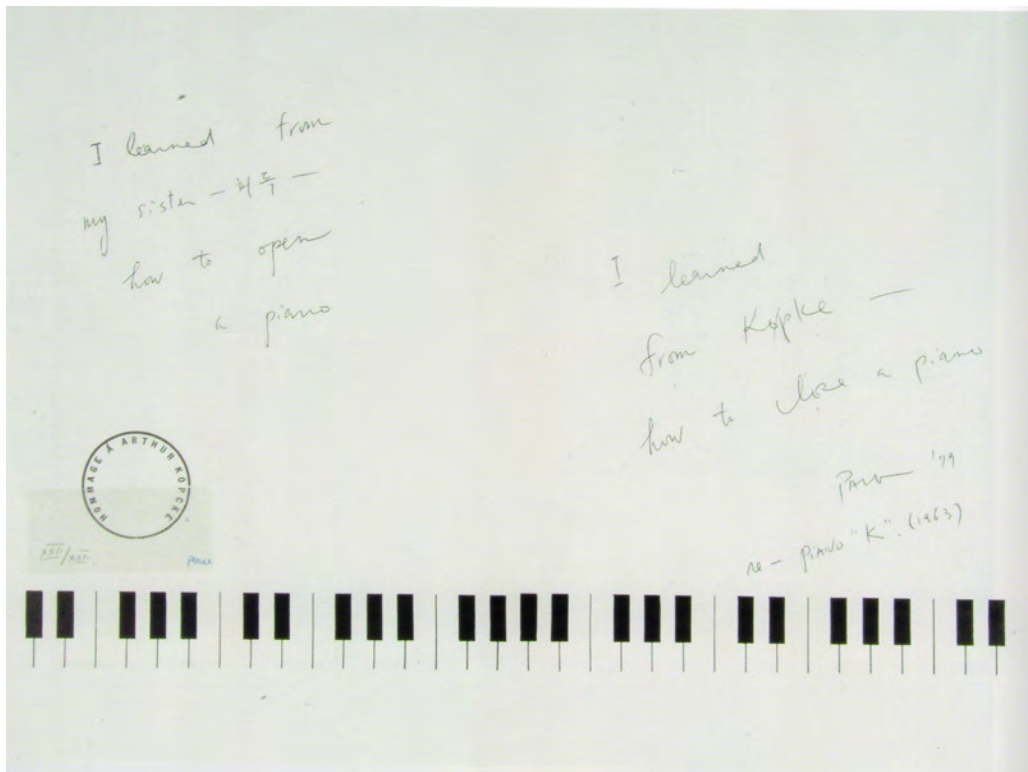 I learned from
my sister – 희득 –
how to open
a piano
I learned
from Köpke —
how to close a piano
PAIK '79
re – PiANO "K". (1963)
HOMMAGE Á ARTHUR KÖPCKE